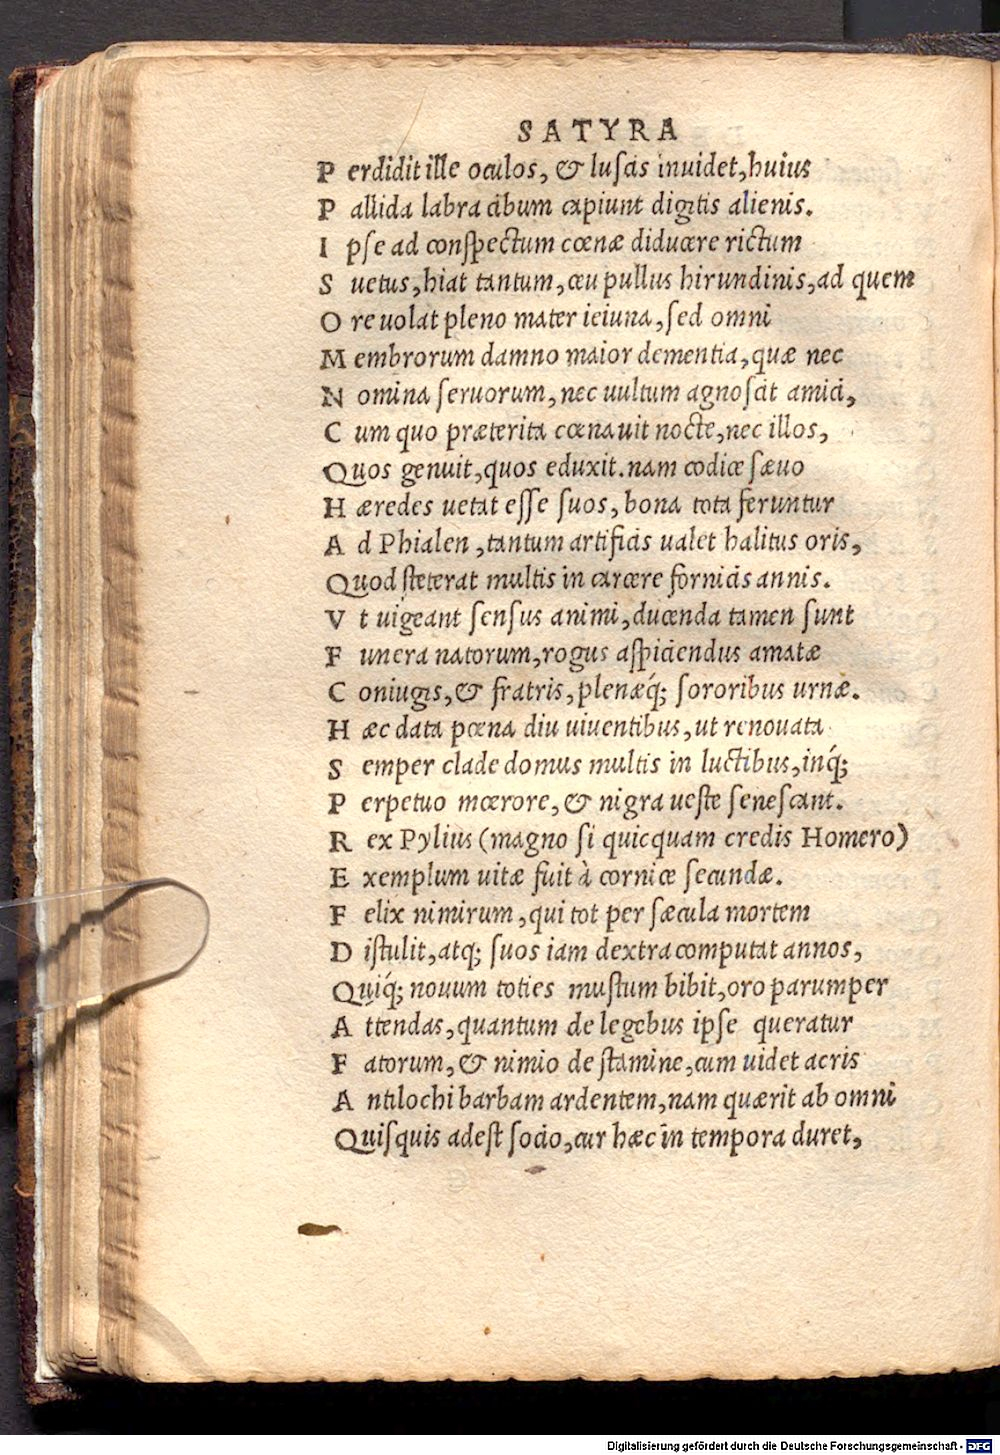 SATYRA
Perdidit ille oculos, & luscis inuidet, huius
Pallida labra cibum capiunt digitis alienis.
Ipse ad conspectum cœnæ diducere rictum
Suetus, hiat tantum, ceu pullus hirundinis, ad quem
Ore uolat pleno mater ieiuna, sed omni
Membrorum damno maior dementia, quæ nec
Nomina seruorum, nec uultum agnoscit amici,
Cum quo præterita cœnauit nocte, nec illos,
Quos genuit, quos eduxit. nam codice sæuo
Hæredes uetat esse suos, bona tota feruntur
Ad Phialen, tantum artificis ualet halitus oris,
Quod steterat multis in carcere fornicis annis.
Vt uigeant sensus animi, ducenda tamen sunt
Funera natorum, rogus aspiciendus amatæ
Coniugis, & fratris, plenæq́; sororibus urnæ.
Hæc data pœna diu uiuentibus, ut renouata
Semper clade domus multis in luctibus, inq́;
Perpetuo mœrore, & nigra ueste senescant.
Rex Pylius (magno si quicquam credis Homero)
Exemplum uitæ fuit à cornice secundæ.
Felix nimirum, qui tot per sæcula mortem
Distulit, atq; suos iam dextra computat annos,
Quiq́; nouum toties mustum bibit, oro parumper
Attendas, quantum de legebus ipse queratur
Fatorum, & nimio de stamine, cum uidet acris
Antilochi barbam ardentem, nam quærit ab omni
Quisquis adest socio, cur hæc in tempora duret,
Digitalisierung gefördert durch die Deutsche Forschungsgemeinschaft - DFG